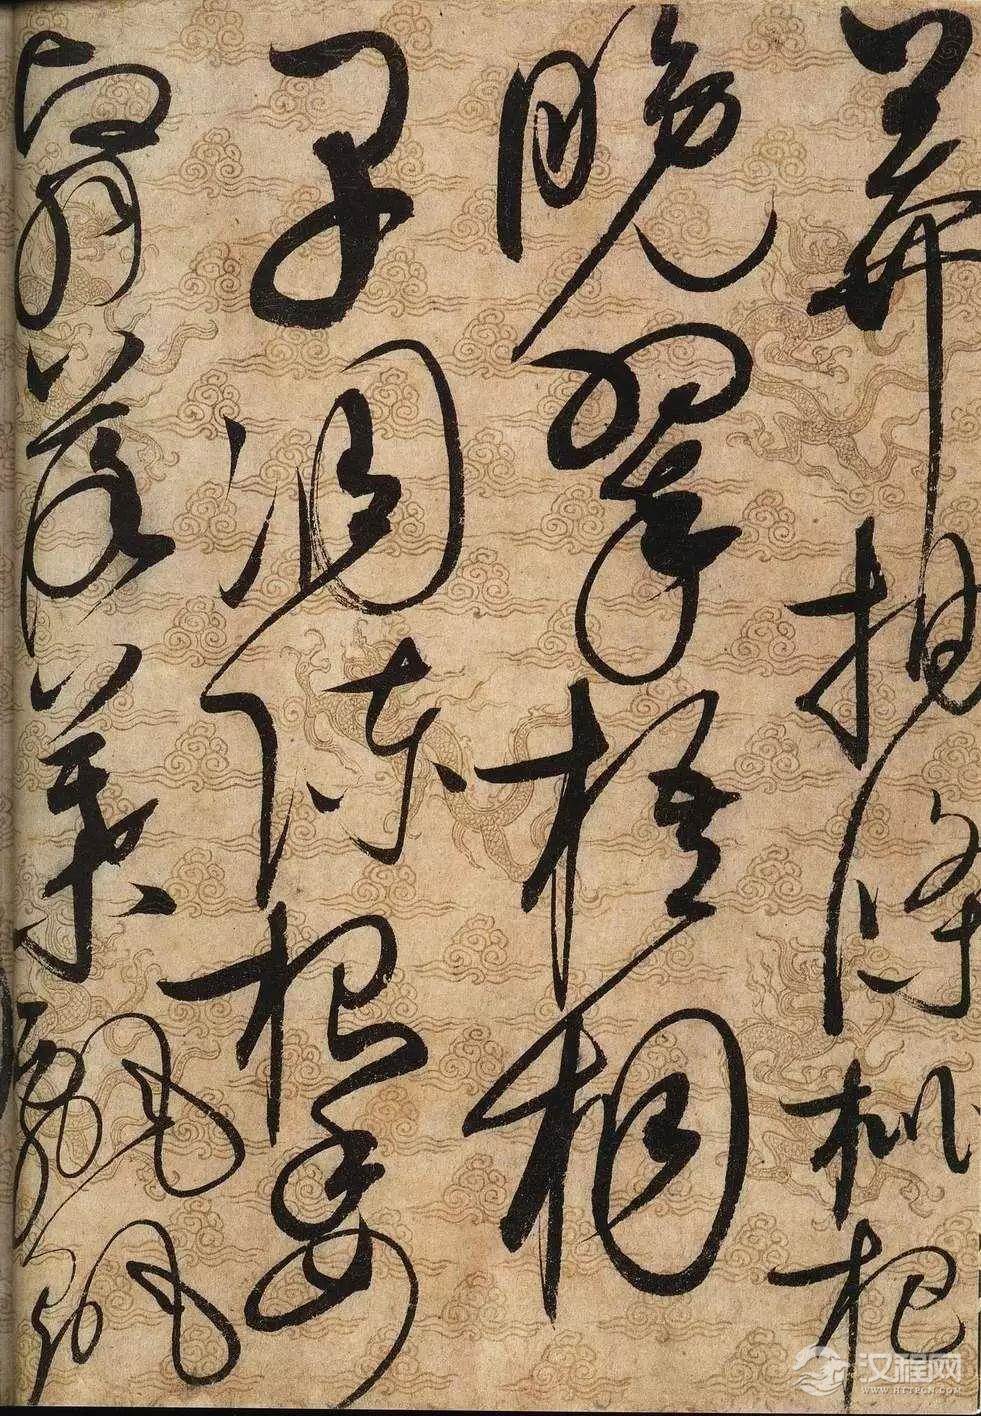 莽抽条枇杷
晚翠梧桐
早凋陈根委
翳落叶飘飖
汉程网
WWW.HTTPCN.COM